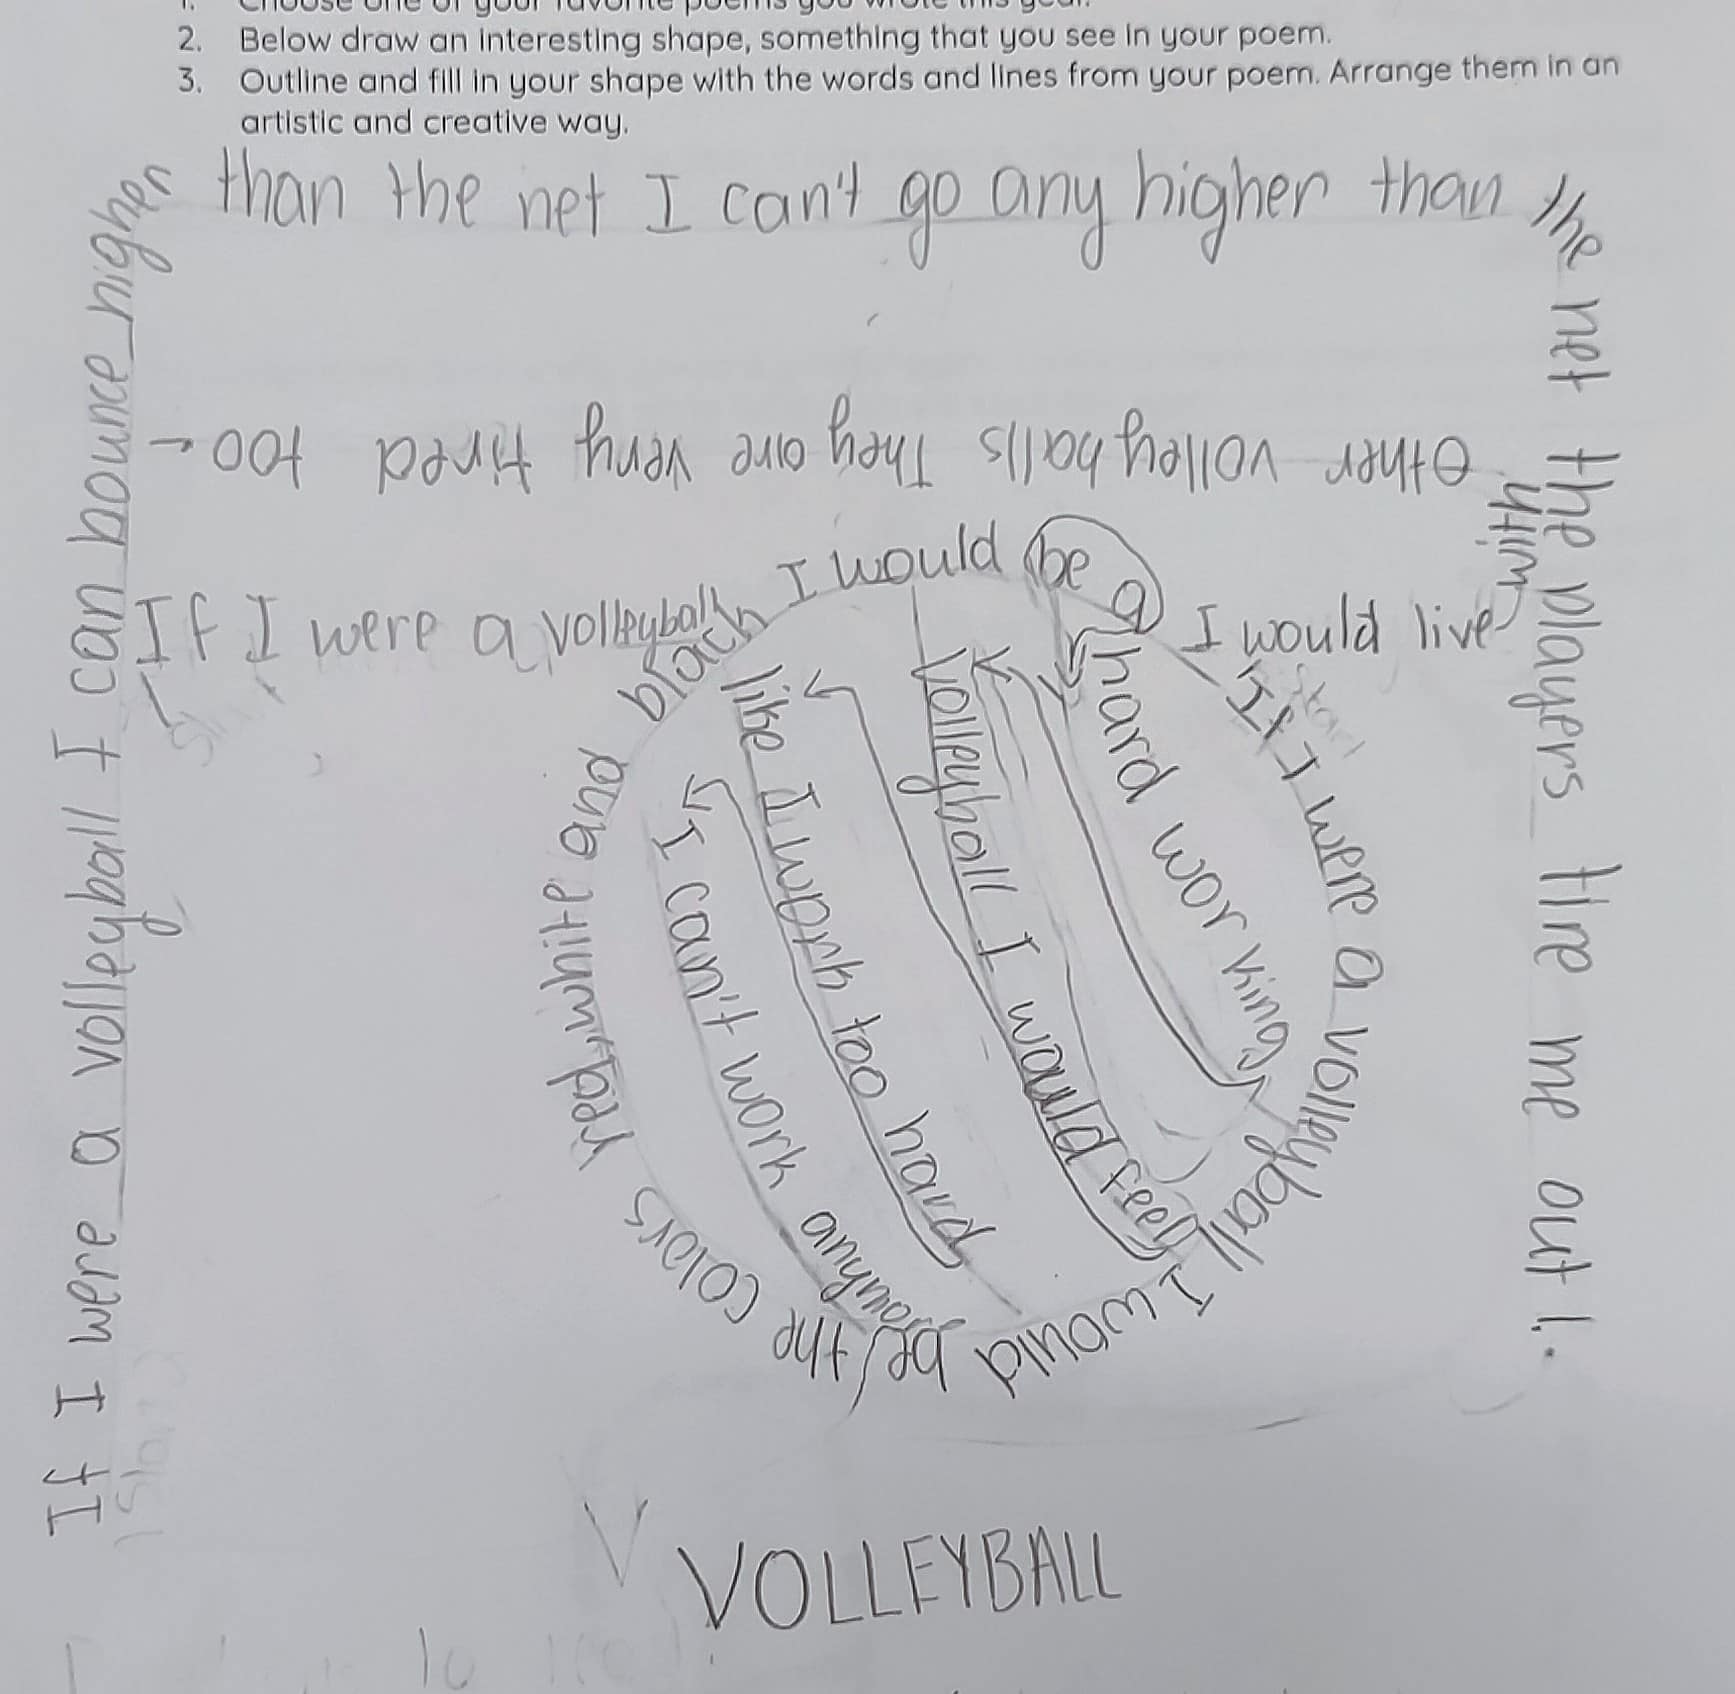 1. Choose one of your favorite poems you wrote this year.
2. Below draw an interesting shape, something that you see in your poem.
3. Outline and fill in your shape with the words and lines from your poem. Arrange them in an
artistic and creative way.
If I were a volleyball I can bounce higher
than the net I can't go any higher than
the net the players tire me out!.
If I were a volleyball
I would live
with
Other volleyballs They are very tired too
If I were a volleyball I would be the colors red, white and black
I would be a
hard working
Volleyball I would feel
like I work too hard
I can't work anymore
VOLLEYBALL